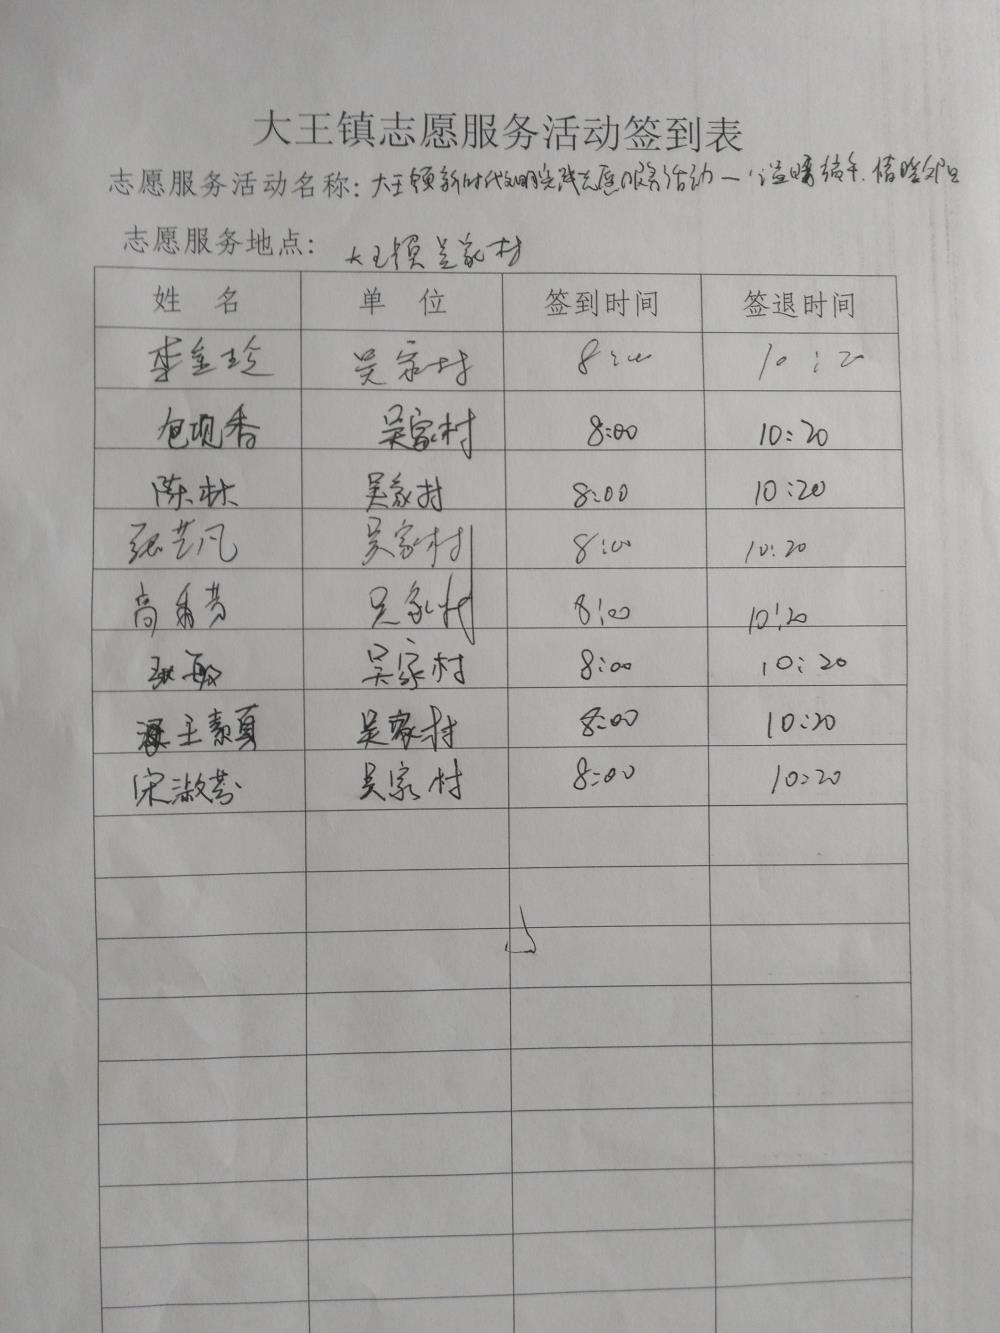 大王镇志愿服务活动签到表
志愿服务活动名称: 大王镇新时代文明实践志愿服务活动—"温暖端午.情暖邻里
志愿服务地点: 大王镇吴家村
姓 名 单 位 签到时间 签退时间
李金玲 吴家村 8:00 10:20
香 吴家村 8:00 10:20
陈林 吴家村 8:00 10:20
张艺凡 吴家村 8:00 10:20
高秀芳 吴家村 8:00 10:20
敏 吴家村 8:00 10:20
王素真 吴家村 8:00 10:20
宋淑芬 吴家村 8:00 10:20